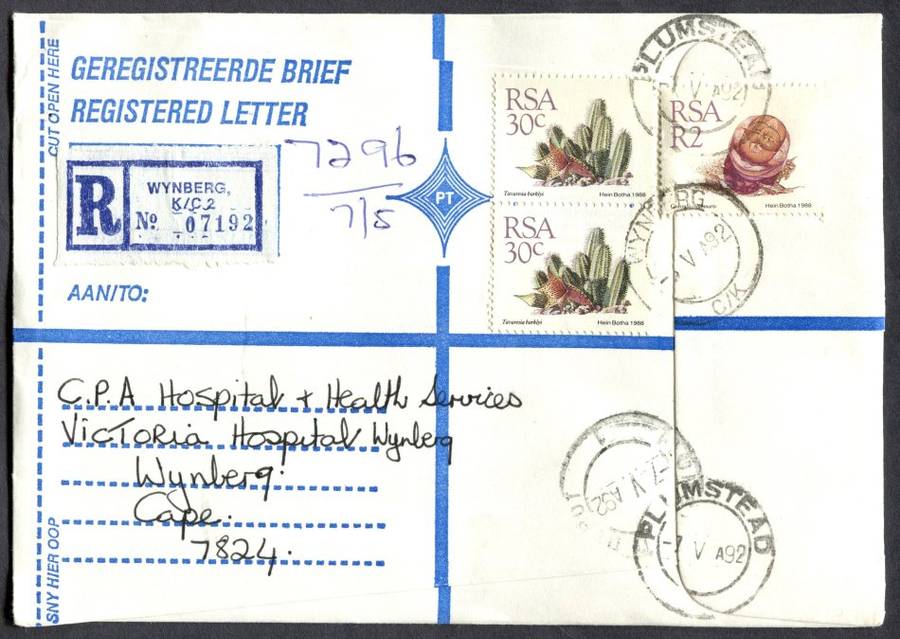 CUT OPEN HERE
GEREGISTREERDE BRIEF
REGISTERED LETTER
R
WYNBERG,
K/C.2
No 07192
7296
7/5
PT
AAN/TO:
RSA
30c
Hein Botha 1988
RSA
30c
Hein Botha 1988
RSA
R2
Hein Botha 1988
PLUMSTEAD
V A92
WYNBERG
V A92
C/K
C.P.A Hospital + Health Services
Victoria Hospital Wynberg
Wynberg.
Cape.
7824.
SNY HIER OOP
-7 V A92
PLUMSTEAD
-7 V A92